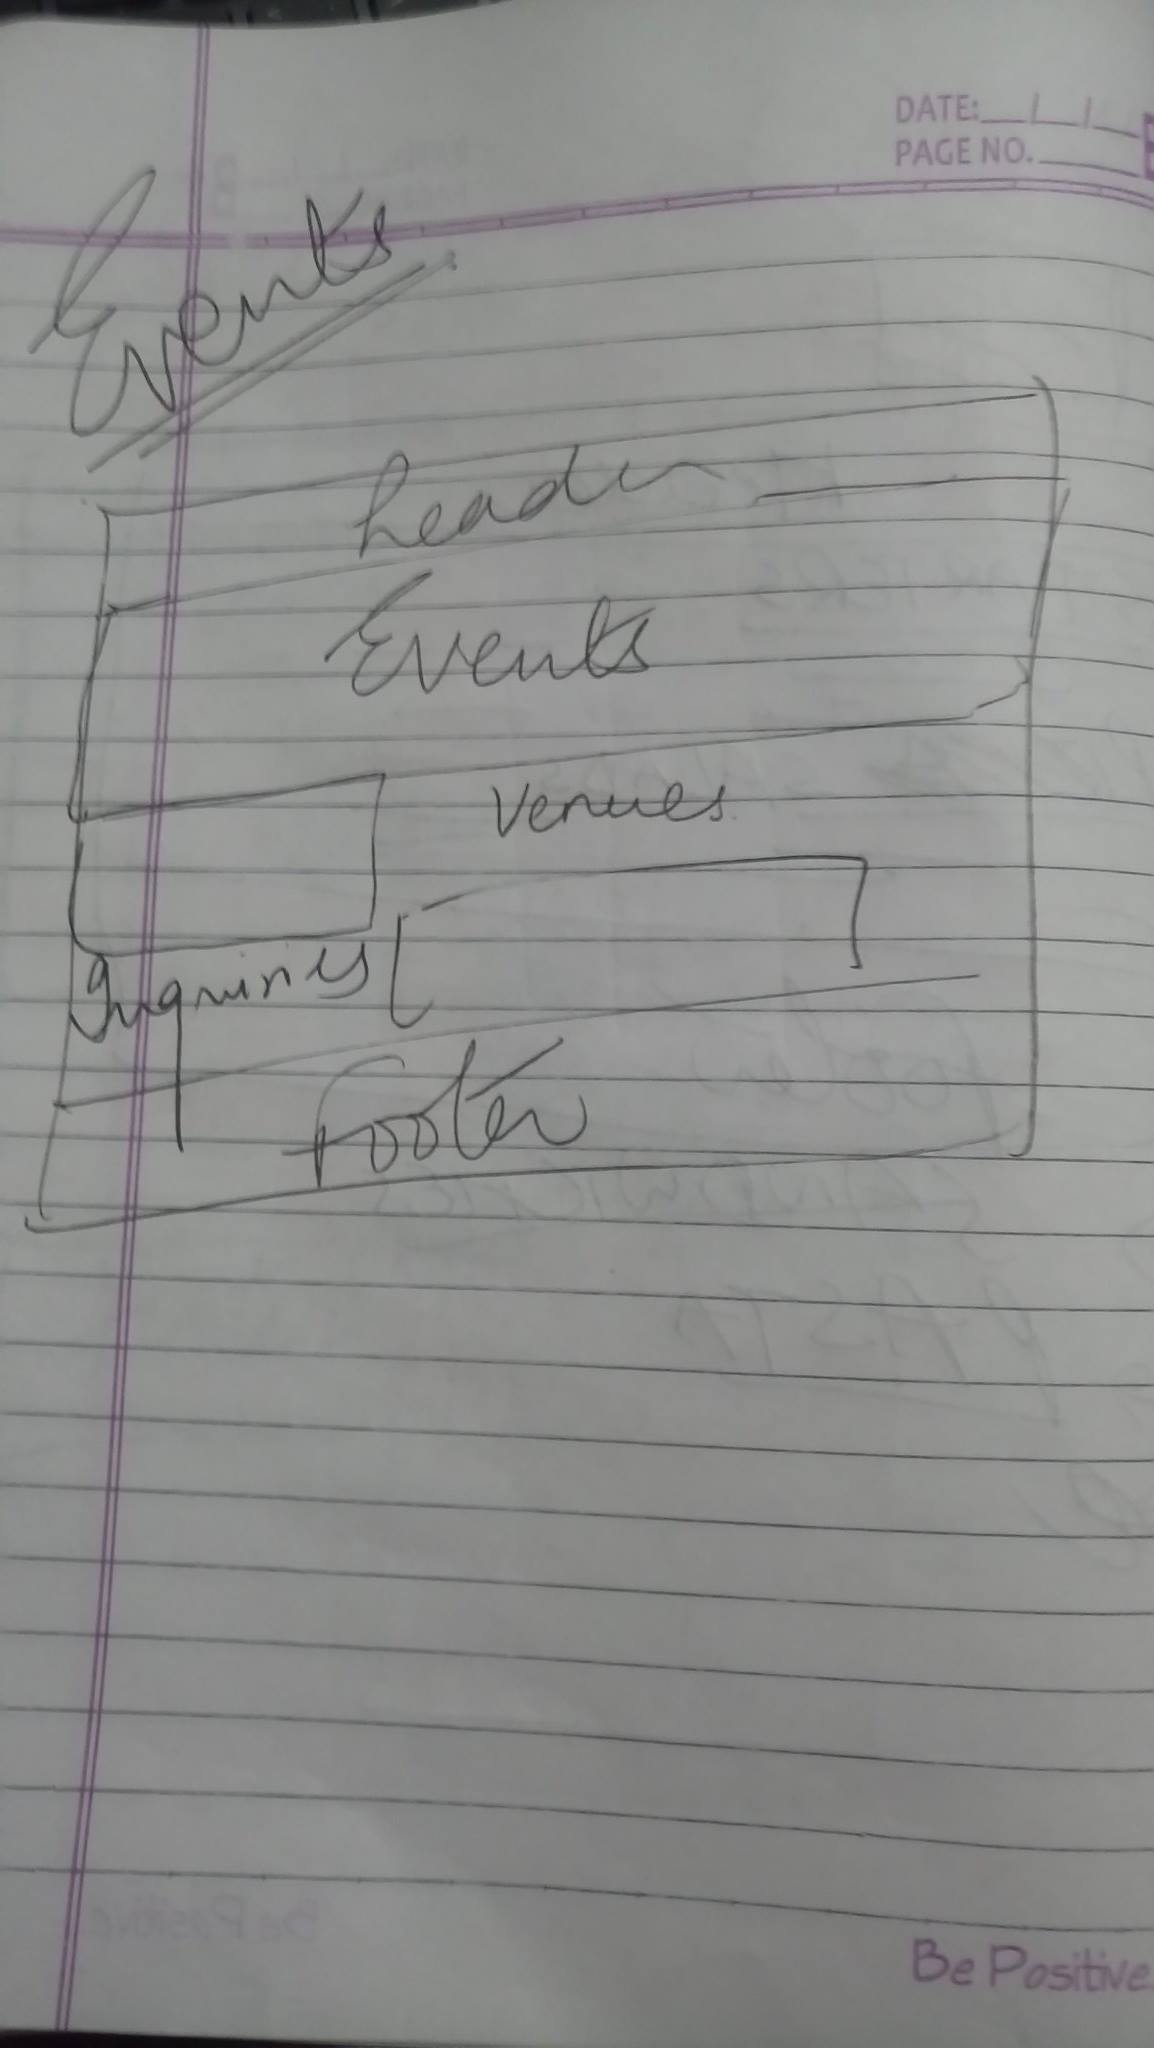 DATE: / /
PAGE NO.
Events
header
Events
Venues
Inquiries
Footer
Be Positive